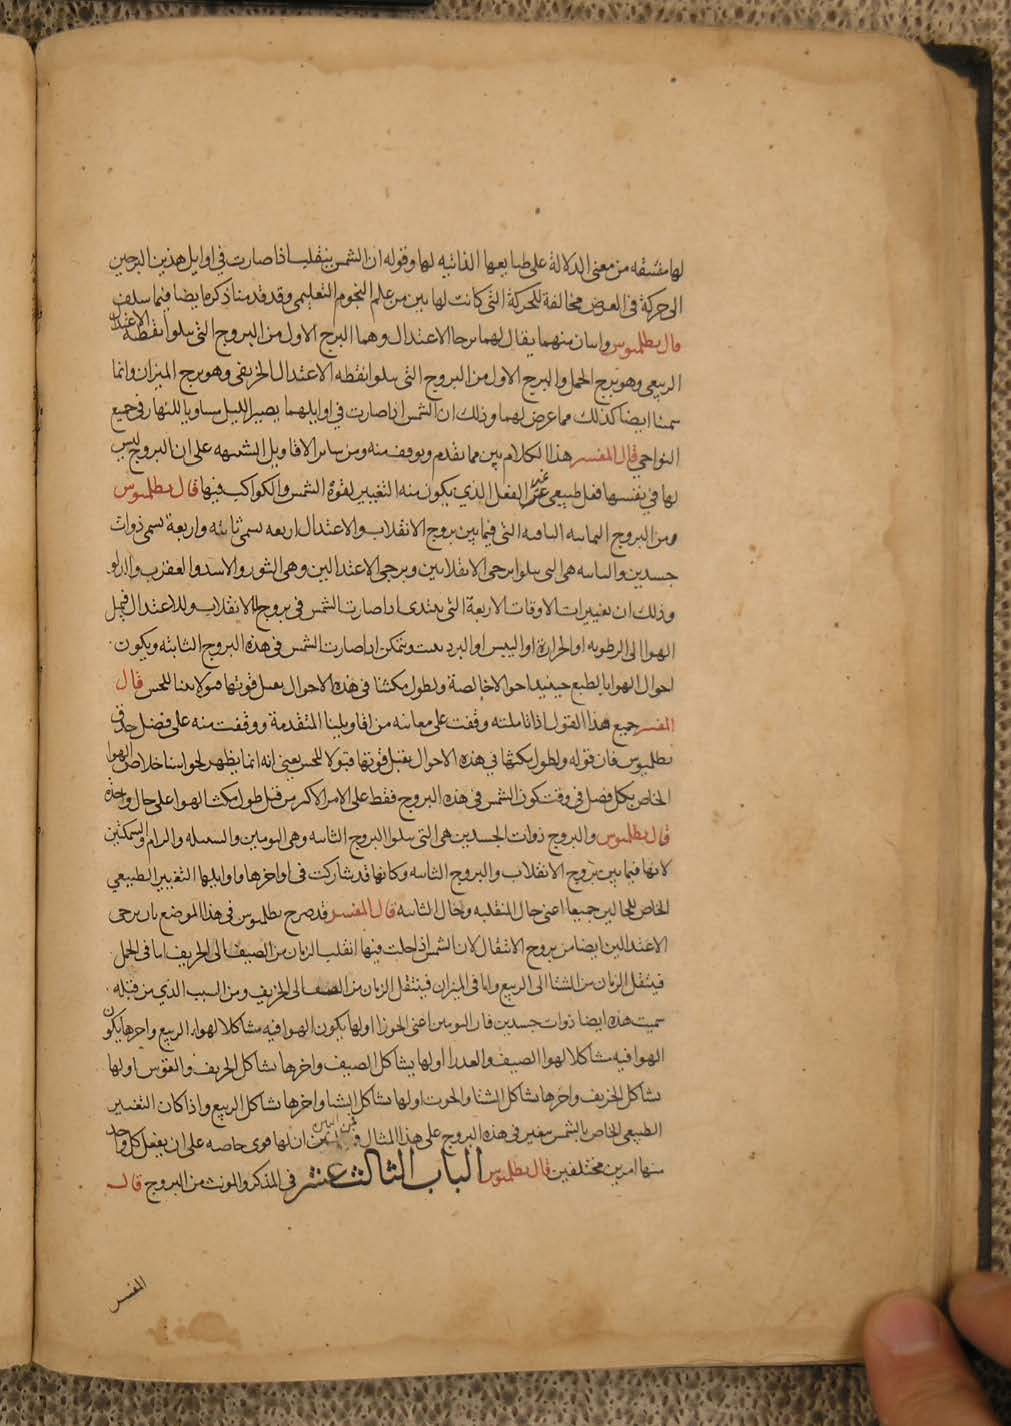 لها متسقه من معنى الدلالة على طبايعها الذاتيه لها وقوله ان الشمس ينقلب اذا صارت في اوايل هذين البرجين
الى حركة في العرض مخالفة للحركة التي كانت لها بين من علم النجوم التعليمي وقد قدمنا ذكره ايضا فيما سلف
قال بطلميوس واسان منهما يقال لهما برجا الاعتدال وهما البرج الاول من البروج التي يتلوا نقطة الاعتدال
الربيعي وهو برج الحمل والبرج الاول من البروج التي يتلوا نقطه الاعتدال الخريفي وهو برج الميزان وانما
سمينا ايضا كذلك مما عرض لهما وذلك ان الشمس اذا صارت في اوايلهما يصير الليل مساويا للنهار في جميع
النواحي قال المفسر هذا الكلام بين مما تقدم ويوقف منه ومن ساير الاقاويل الشبيهه على ان البروج ليس
لها في نفسها فعل طبيعي غير الفعل الذي يكون منه التغيير لقوة الشمس والكواكب فيها قال بطلميوس
ومن البروج الثمانيه الباقيه التي فيما بين بروج الانقلاب والاعتدال اربعه تسمى ثابته واربعة تسمى ذوات
جسدين والثابته هى التى يتلوا برجى الانقلابين وبرجى الاعتدالين وهى الثور والاسد والعقرب والدلو
وذلك ان تغييرات الاوقات الاربعة التى يبتدى اذا صارت الشمس فى بروج الانقلاب وللاعتدال فيحل
الهوا الى الرطوبه او الحرارة او اليبس او البرد يثبت ويتمكن اذا صارت الشمس فى هذه البروج الثابته ويكون
احوال الهوا بالطبع حينيذ احوالا خالصة ولطول مكثنا فى هذه الاحوال يقبل قوتها قبولا بينا للحس قال
المفسر جميع هذا القول اذا تاملته وقفت على معانيه من اقاويلنا المتقدمة ووقفت منه على فضل حذق
بطلميوس فان قوله ولطول مكثنا في هذه الاحوال يقبل قوتها قبولا للحس يعنى انه انما يظهر لحواسنا خلاص الهوا
الخاص بكل فصل فى وقت كون الشمس فى هذه البروج فقط على الامر الاكثر من قبل طول مكث الهوا على حال واحدة
قال بطلميوس والبروج ذوات الجسدين هى التى يتلوا البروج الثابته وهى التومين والسنبله والرام والسمكتين
لانها فيما بين بروج الانقلاب والبروج الثابته وكانها قد شاركت فى اواخرها واوايلها التغيير الطبيعي
الخاص للحالين جميعا اعنى حال المنقلبه وحال الثابته قال المفسر قد صرح بطلميوس فى هذا الموضع بان برجى
الاعتدالين ايضا من بروج الانتقال لان الشمس اذا حلت فيها انقلب الزمان من الصيف الى الخريف اما فى الحمل
فينتقل الزمان من الشتا الى الربيع واما فى الميزان فينتقل الزمان من الصيف الى الخريف ومن السبب الذي من قبله
سميت هذه ايضا ذوات جسدين فان التومين اعنى الجوزا اولها يكون الهوا فيه مشاكلا لهوا الربيع واخرها يكون
الهوا فيه مشاكلا لهوا الصيف والعذرا اولها يشاكل الصيف واخرها يشاكل الخريف والقوس اولها
يشاكل الخريف واخرها يشاكل الشتا والحوت اولها يشاكل الشتا واخرها يشاكل الربيع واذا كان التغيير
الطبيعي الخاص بالشمس يتغير فى هذه البروج على هذا المثال فمن البين ان لها قوى خاصه على ان يفعل كل واحد
منها امرين مختلفين قال بطلميوس الباب الثالث عشر فى المذكر والمونث من البروج قال
المفسر